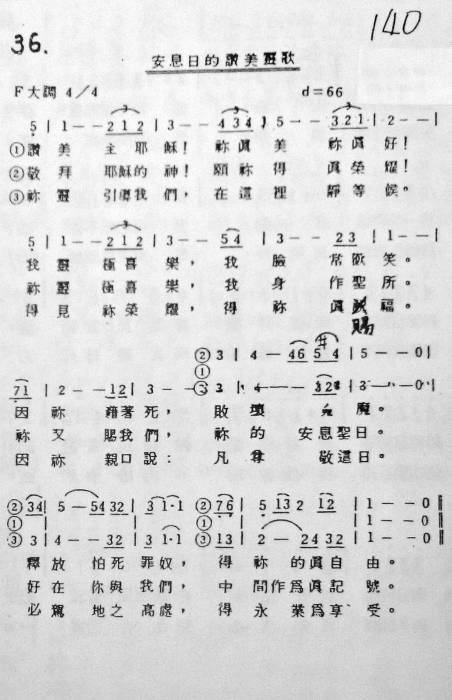 140
36.
安息日的讚美靈歌
F大調 4/4 d=66
5 | 1 - - 2 1 2 | 3 - - 4 3 4 | 5 - - 3 2 1 | 2 - - |
①讚美 主耶穌！祢眞美 祢眞好！
②敬拜 耶穌的神！願祢得 眞榮耀！
③祢靈 引導我們，在這裡 靜等候。
5 | 1 - - 2 1 2 | 3 - - 5 4 | 3 - - 2 3 | 1 - - |
我靈 極喜樂，我臉 常歡笑。
祢靈 極喜樂，我身 作聖所。
得見 祢榮耀，得祢 眞 福
賜
②3 | 4 - - 4 6 5 4 | 5 - - 0 |
①
7 1 | 2 - - 1 2 | 3 - - ③3 | 4 - - 3 2 | 3 - - 0 |
因祢 藉著死，敗壞 魔
祢又 賜我們，祢的 安息聖日。
因祢 親口說：凡尊 敬這日。
②3 4 | 5 - 5 4 3 2 | 3 1 - 1 | ②7 6 | 5 1 3 2 1 2 | 1 - - 0 ‖
① ① 1 - - 0
③3 4 | 4 - - 3 2 | 3 1 - 1 | ③1 3 | 2 - 2 4 3 2 | 1 - - 0 ‖
釋放 怕死罪奴，得祢的眞自由。
好在 你與我們，中間作爲眞記號。
必駕 地之高處，得永業爲享受。